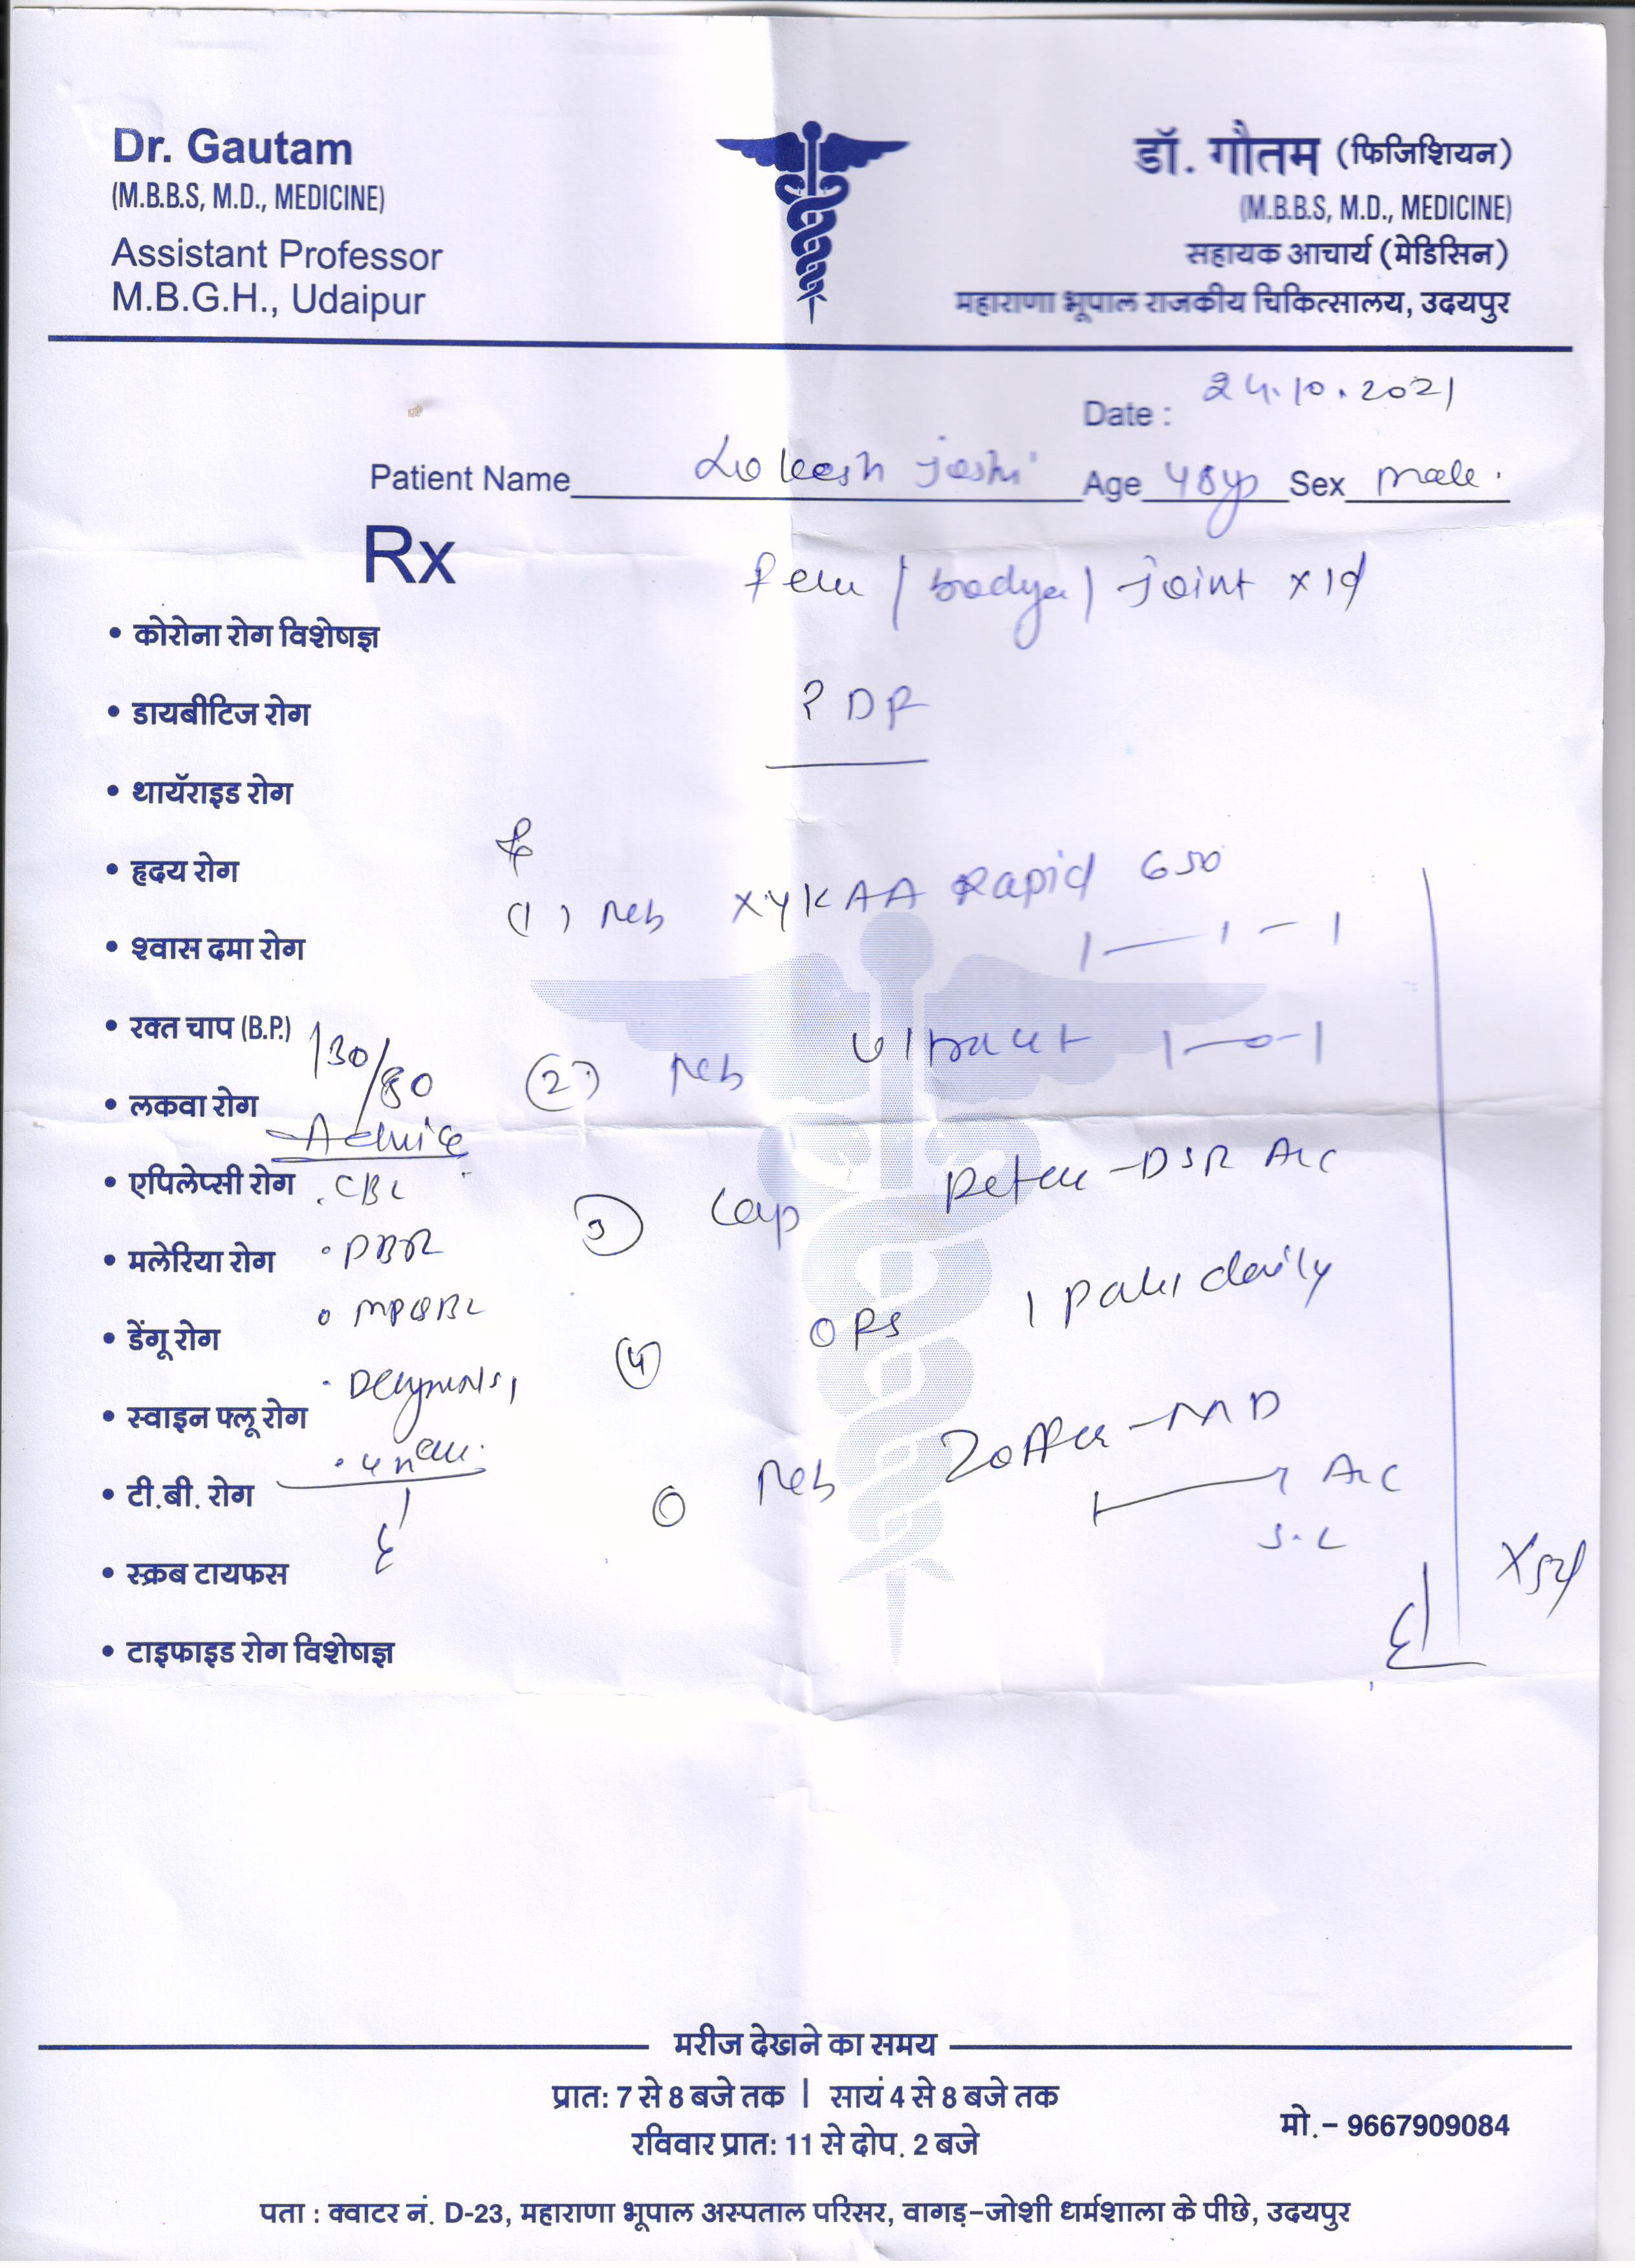 Dr. Gautam
(M.B.B.S, M.D., MEDICINE)
Assistant Professor
M.B.G.H., Udaipur
डॉ. गौतम (फिजिशियन)
(M.B.B.S, M.D., MEDICINE)
सहायक आचार्य (मेडिसिन)
महाराणा भूपाल राजकीय चिकित्सालय, उदयपुर
Date : 24.10.2021
Patient Name Lokesh Joshi Age 48yr Sex Male
Rx
joint x 1d
? DF
• कोरोना रोग विशेषज्ञ
• डायबीटिज रोग
• थायॅराइड रोग
• हृदय रोग
• श्वास दमा रोग
• रक्त चाप (B.P.) 130/80
• लकवा रोग
• एपिलेप्सी रोग
• मलेरिया रोग
• डेंगू रोग
• स्वाइन फ्लू रोग
• टी.बी. रोग
• स्क्रब टायफस
• टाइफाइड रोग विशेषज्ञ
Advice
. CBC
(1) XYKAA Rapid 650
1 — 1 — 1
(2) 1—0—1
(3) Cap -DSR
(4) ORS 1 daily
-MD
x 5d
मरीज देखने का समय
प्रात: 7 से 8 बजे तक | सायं 4 से 8 बजे तक
रविवार प्रात: 11 से दोप. 2 बजे
मो.- 9667909084
पता : क्वाटर नं. D-23, महाराणा भूपाल अस्पताल परिसर, वागड़-जोशी धर्मशाला के पीछे, उदयपुर